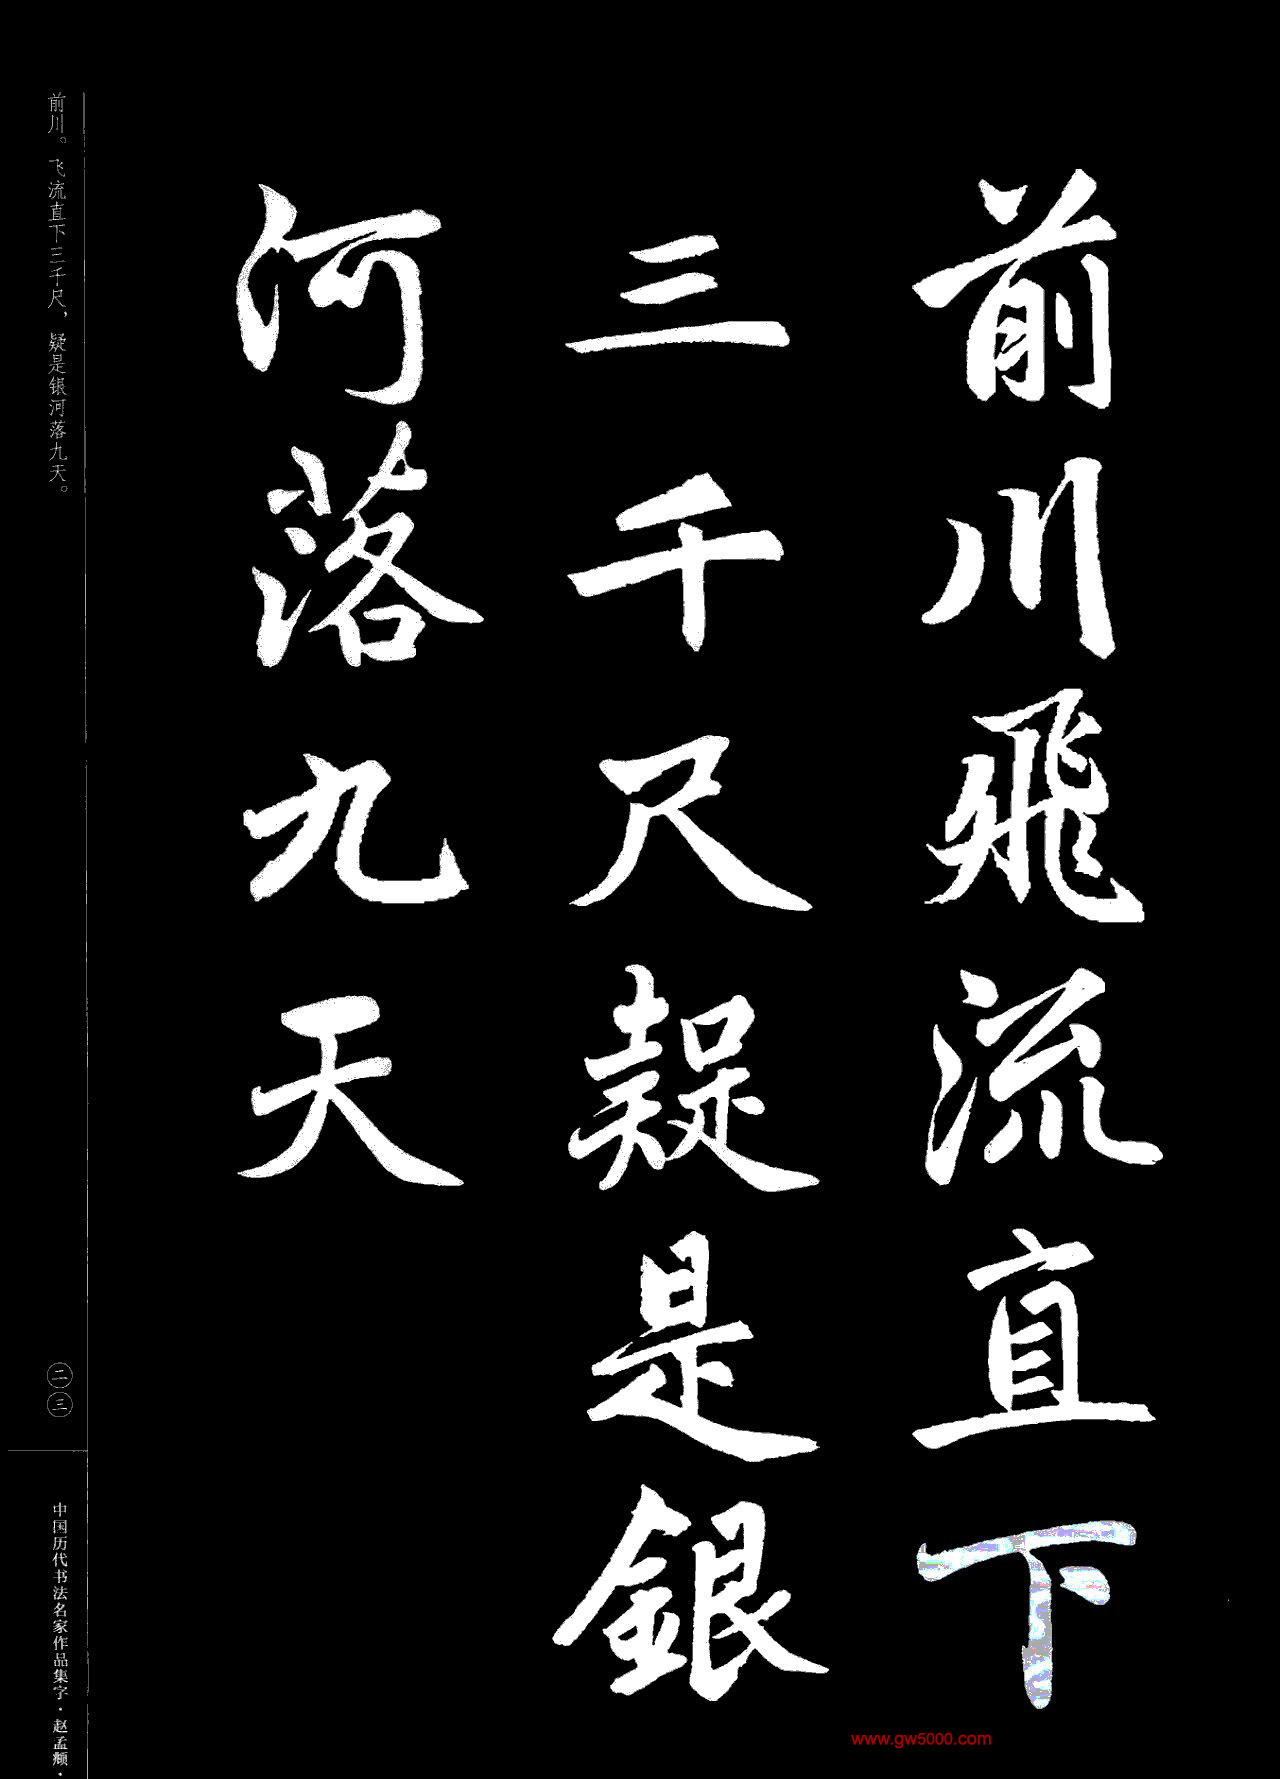 前川飛流直下
三千尺疑是銀
河落九天
前川。飞流直下三千尺，疑是银河落九天。
二三
中国历代书法名家作品集字·赵孟頫·
www.gw5000.com